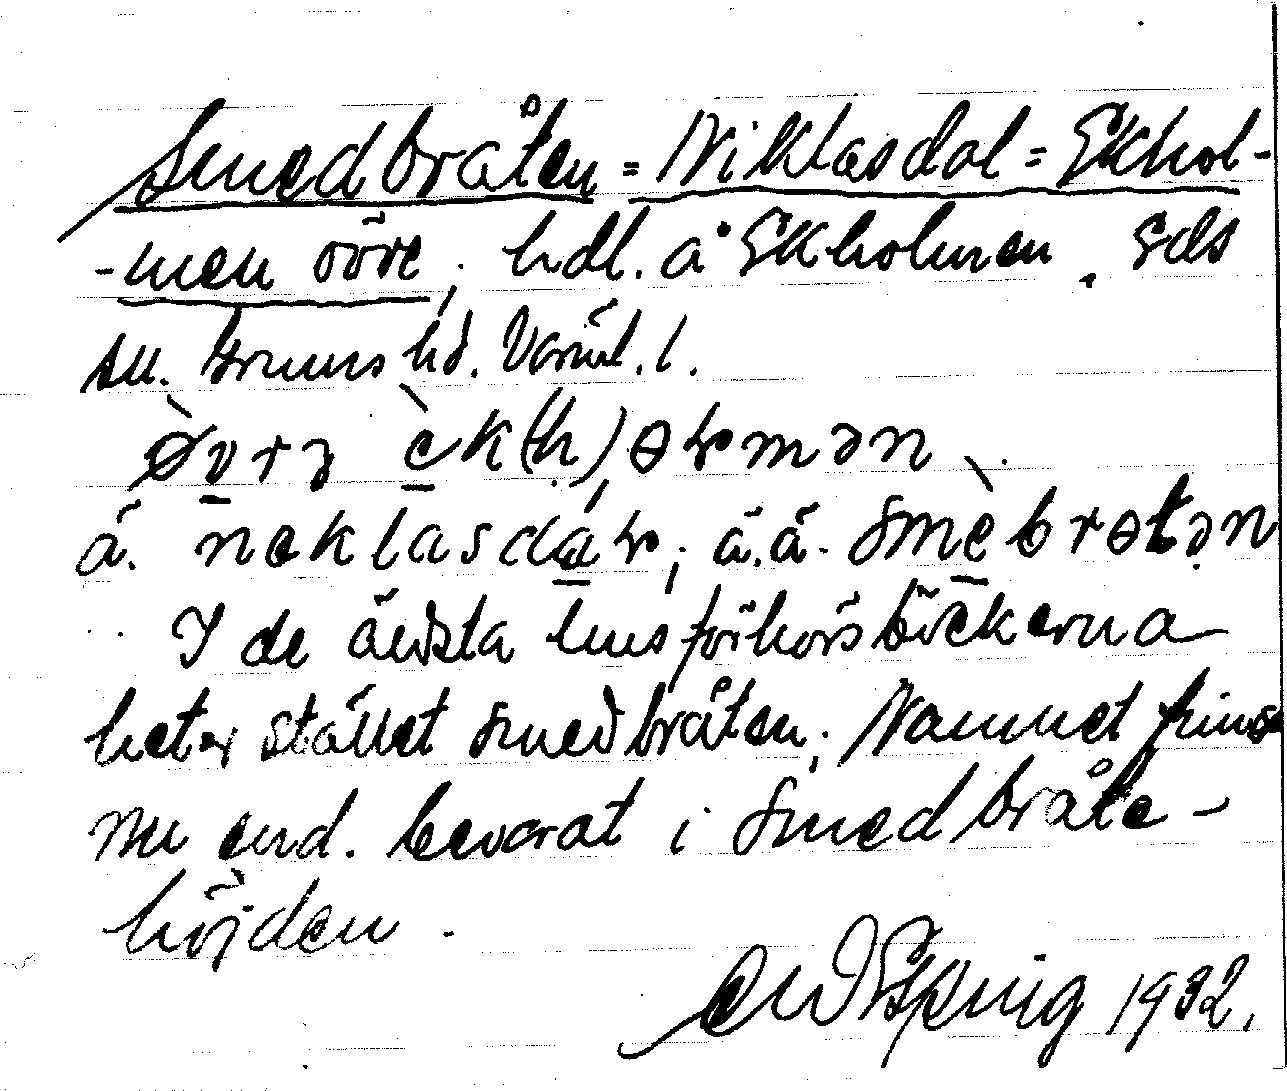 Smedbråten = Niklasdal = Ekhol-
-men övre; hdl. å Ekholmen. Eds
sn. Grums hd. Värml. l.
øvrə ek(h)ɵɽmən
ä. neklasdaɽ; ä.ä. smebrɵtən
I de äldsta husförhörsböckerna
heter stället Smedbråten; Namnet finns
nu end. bevarat i Smedbråte-
höjden.
1932.